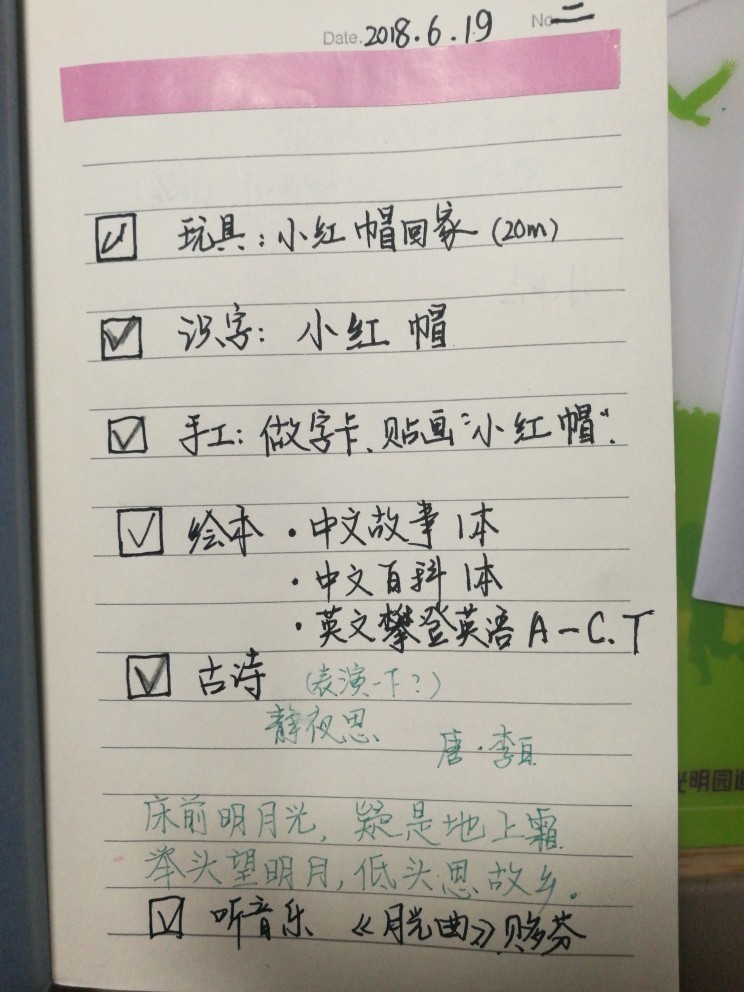 Date. 2018.6.19 No 二
玩具：小红帽回家 (20m)
识字：小红帽
手工：做字卡、贴画"小红帽".
绘本 · 中文故事 1本
· 中文百科 1本
· 英文攀登英语 A-C.T
古诗 (表演一下?)
静夜思
唐·李白
床前明月光，疑是地上霜
举头望明月，低头思故乡。
听音乐 《月光曲》贝多芬
光明园